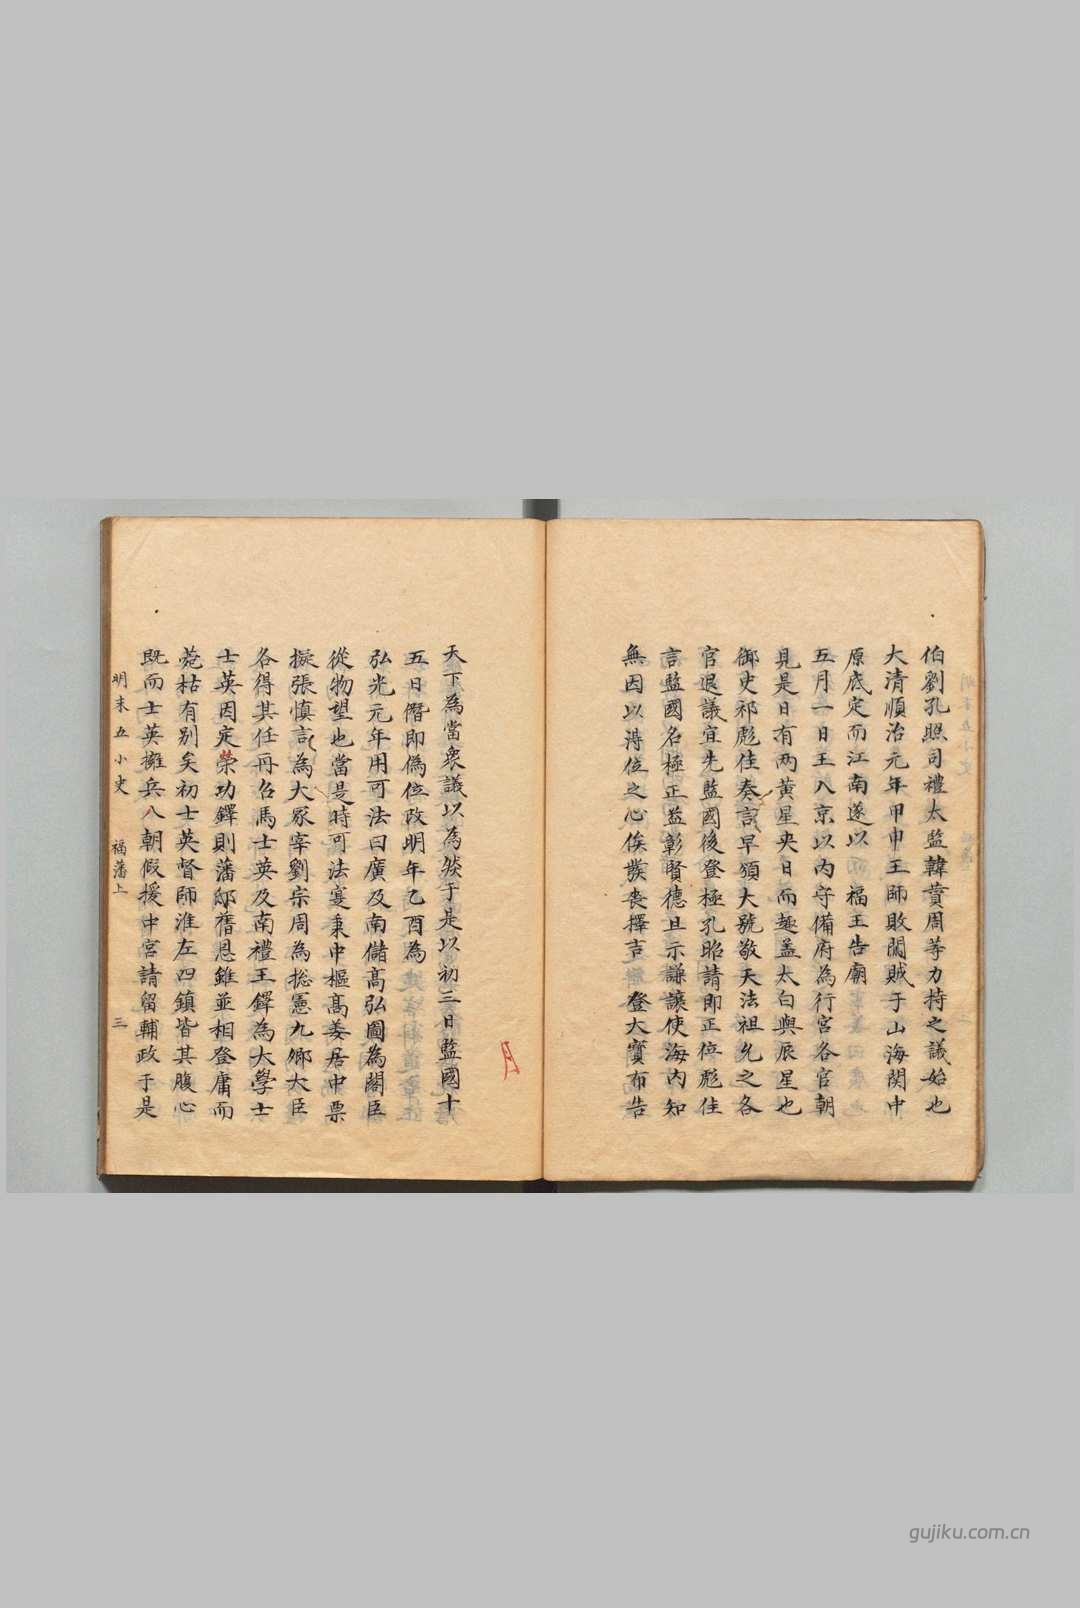 伯劉孔照司禮太監韓賛周等力持之議始也
大清順治元年甲申王師敗闖賊于山海関中
原底定而江南遂以 福王告廟
五月一日王入京以内守備府為行宮各官朝
見是日有两黄星夾日而趨盖太白與辰星也
御史祁彪佳奏言早頒大號敬天法祖允之各
官退議宜先監國後登極孔昭請即正位彪佳
言監國名極正益彰賢德且示謙讓使海内知
無因以得位之心俟發喪擇吉 登大寶布告
天下為當衆議以為然于是以初三日監國十
五日僭即偽位改明年乙酉為
弘光元年用可法曰廣及南儲髙弘圖為閣臣
從物望也當是時可法寔秉中樞髙姜居中票
擬張慎言為大冢宰劉宗周為総憲九卿大臣
各得其任再召馬士英及南禮王鐸為大學士
士英因定榮功鐸則藩邸舊恩雖並相登庸而
菀枯有别矣初士英督師淮左四鎮皆其腹心
既而士英擁兵入朝假援中宮請留輔政于是
明末五小史 福藩上 三
gujiku.com.cn